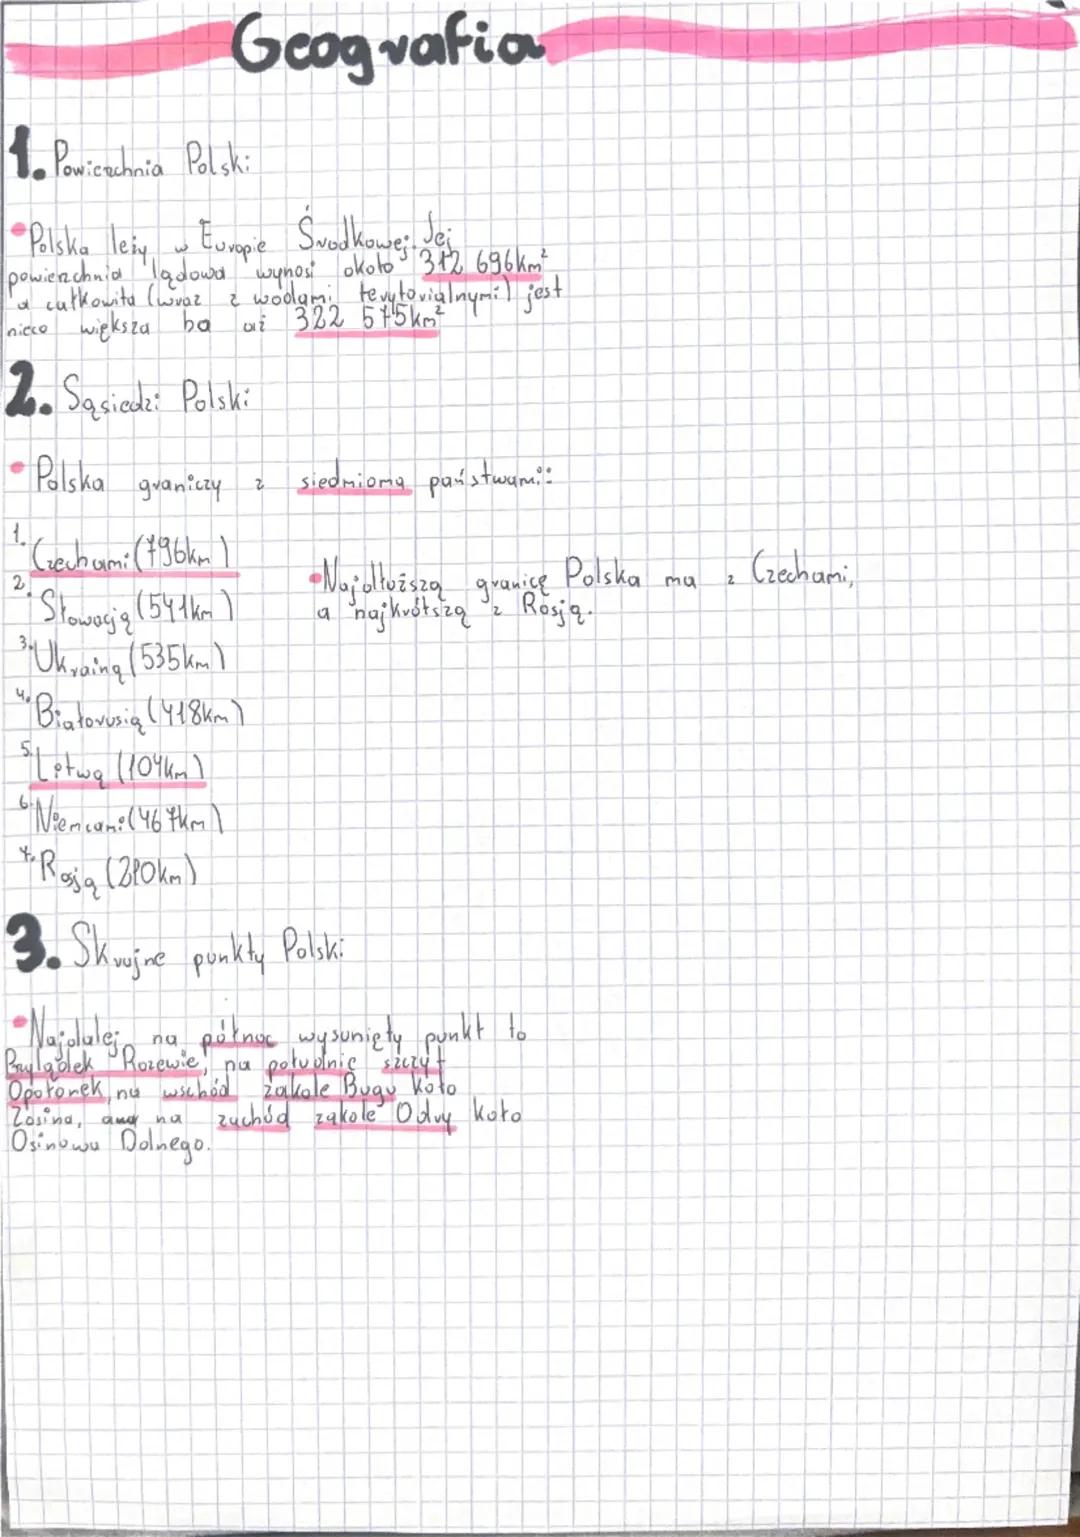 Geografia
1. Powierzchnia Polski
• Polska leży w Europie Środkowej. Jej
powierzchnia lądowa wynosi około 312 696km²
a całkowita (wraz z wodami terytorialnymi) jest
nieco większa ba aż 322 575km²
2. Sąsiedzi Polski
• Polska graniczy z siedmioma państwami:
1. Czechami (796km)
2. Słowacją (541km)
• Najdłuższą granicę Polska ma z Czechami,
a najkrótszą z Rosją.
3. Ukrainą (535km)
4. Białorusią (418km)
5. Litwą (104km)
6. Niemcami (467km)
7. Rosją (210km)
3. Skrajne punkty Polski
• Najdalej na północ wysunięty punkt to
Przylądek Rozewie, na południe szczyt
Opołonek, na wschód zakole Bugu koło
Zosina, na zachód zakole Odry koło
Osinowa Dolnego.